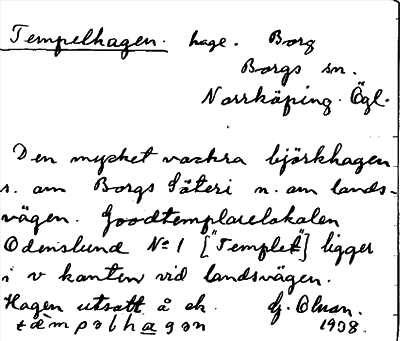 Tempelhagen. hage. Borg
Borgs sn.
Norrköping. Ögl.
Den mycket vackra björkhagen
s. om Borgs Säteri n. om lands-
vägen. Goodtemplarelokalen
Odenslund No 1 ["Templet"] ligger
i v kanten vid landsvägen.
Hagen utsatt å ek. G. Olsson.
tæ̀mpəlhagən 1938.